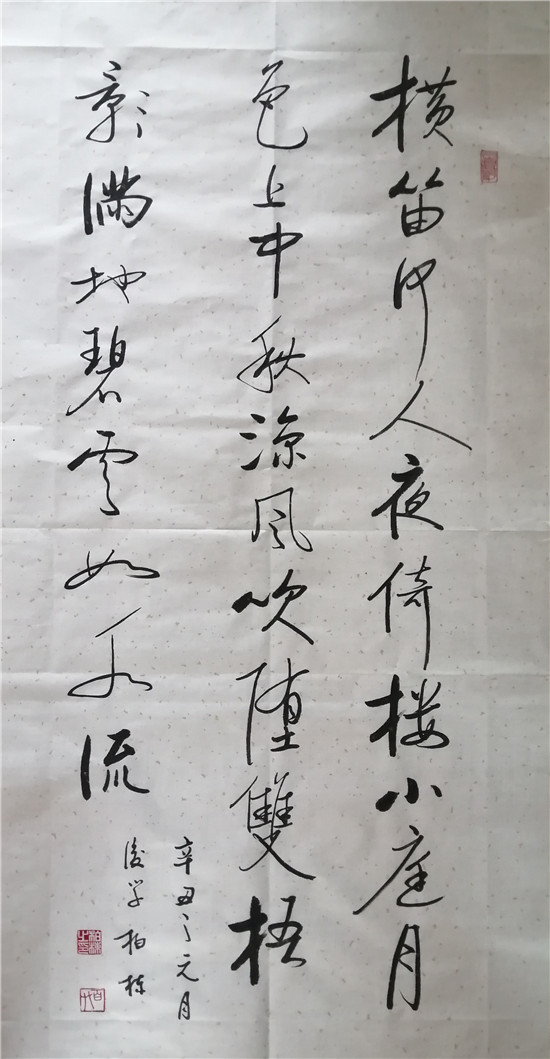 横笛何人夜倚楼小庭月
色上中秋凉风吹堕雙梧
影满地碧雲如水流
辛丑之元月
後学柏栋